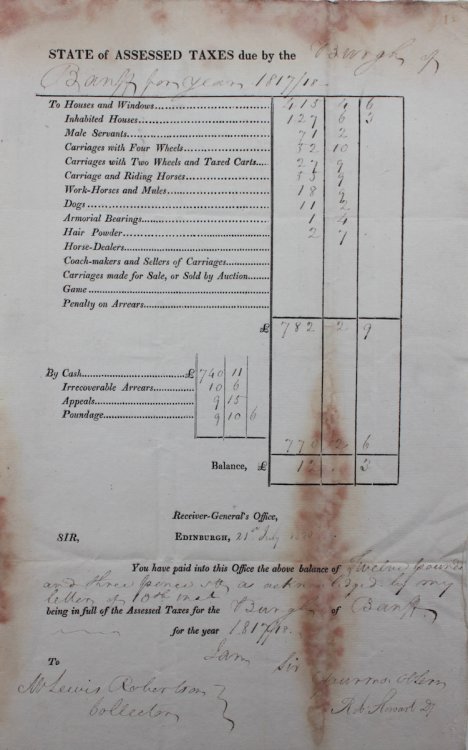 STATE of ASSESSED TAXES due by the Burgh of
Banff for year 1817/18
To Houses and Windows 415 4 6
Inhabited Houses 127 6 3
Male Servants 71 2
Carriages with Four Wheels 32 10
Carriages with Two Wheels and Taxed Carts 27 9
Carriage and Riding Horses
Work-Horses and Mules 18 9
Dogs 11 2
Armorial Bearings 1 4
Hair Powder 2 7
Horse-Dealers
Coach-makers and Sellers of Carriages
Carriages made for Sale, or Sold by Auction
Game
Penalty on Arrears
£ 782 2 9
By Cash £ 740 11
Irrecoverable Arrears 10 6
Appeals 9 15
Poundage 9 10 6
770 2 6
Balance, £ 12 . 3
Receiver-General's Office,
SIR, EDINBURGH, 21st July
You have paid into this Office the above balance of Twelve pounds
and three pence as acknowledged by my
letter of 10th inst
being in full of the Assessed Taxes for the Burgh of Banff
for the year 1817/18.
I am Sir
To
Mr Lewis Robertson
Collector